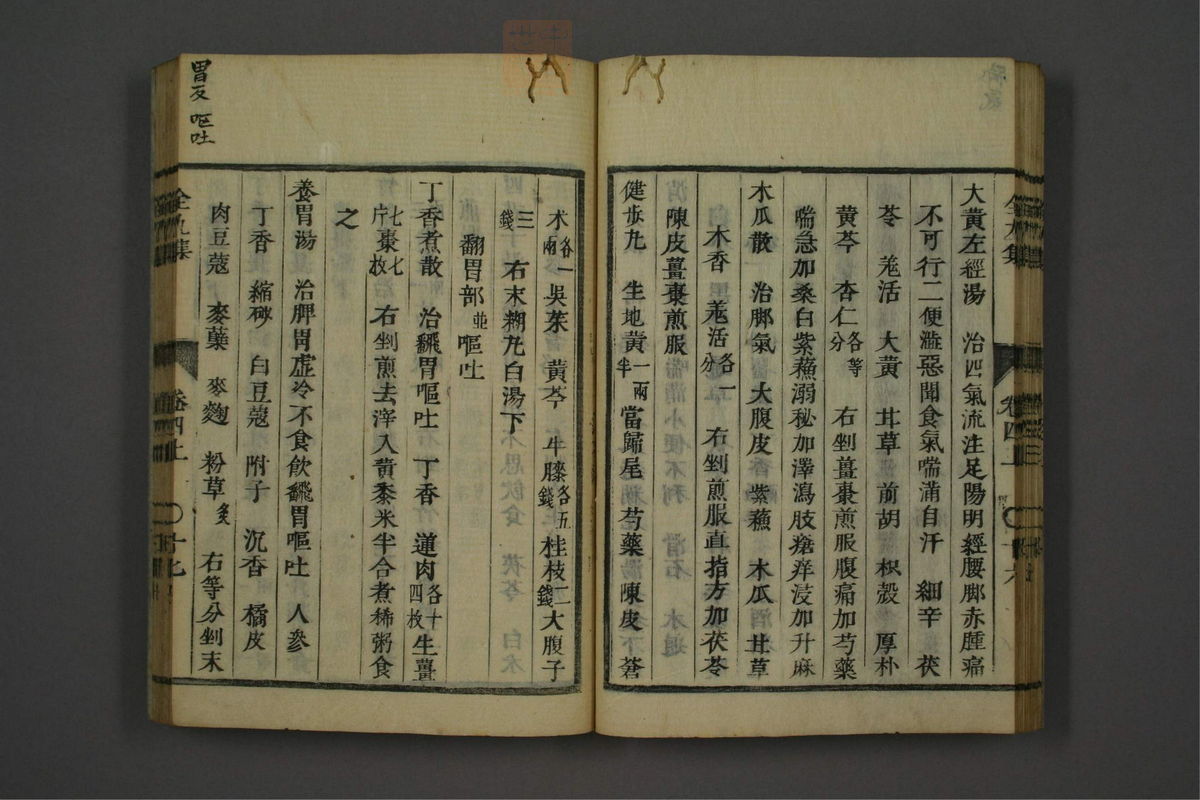 大黃左經湯　治四氣流注足陽明經腰脚赤腫痛
不可行二便澁惡聞食氣喘滿自汗　細辛　茯
苓　羗活　大黃　甘草　前胡　枳殼　厚朴
黃芩　杏仁各等分　右剉薑棗煎服腹痛加芍藥
喘急加桑白紫蘓溺秘加澤瀉肢瘡痒浸加升麻
木瓜散　治脚氣　大腹皮　紫蘓　木瓜　甘草
木香　羗活各一分　右剉煎服直指方加茯苓
陳皮薑棗煎服
健歩丸　生地黃一兩半　當歸尾　芍藥　陳皮　蒼
全九集　卷四上　十六
术各一兩　吳茱　黃芩　牛膝各五錢　桂枝二錢　大腹子
三錢　右末糊丸白湯下
翻胃部並嘔吐
丁香煮散　治飜胃嘔吐　丁香　蓮肉各十四枚　生薑
七片　棗七枚　右剉煎去滓入黃黍米半合煮稀粥食
之
養胃湯　治脾胃虛冷不食飲飜胃嘔吐　人參
丁香　縮砂　白豆蔻　附子　沉香　橘皮
肉豆蔻　麥蘗　麥麴　粉草炙　右等分剉末
全九集　卷四上　十七
胃反　嘔吐